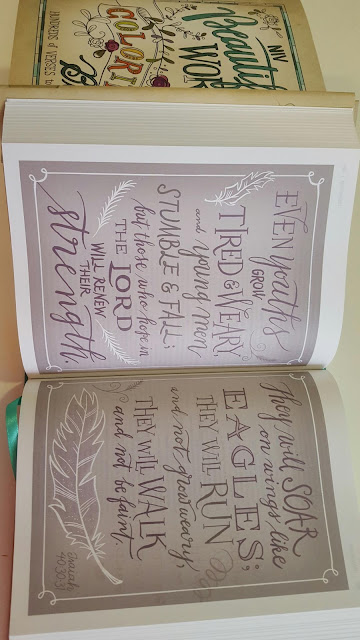 NIV
Beautif
WOR
COLORI
HUNDREDS of VERSES to
EVEN youths
GROW
TIRED & WEARY,
and young men
STUMBLE & FALL;
but those who hope in
THE LORD
WILL RENEW
THEIR
strength.
They will SOAR
on wings like
EAGLES;
THEY WILL RUN
and not grow weary,
THEY WILL WALK
and not be faint.
isaiah